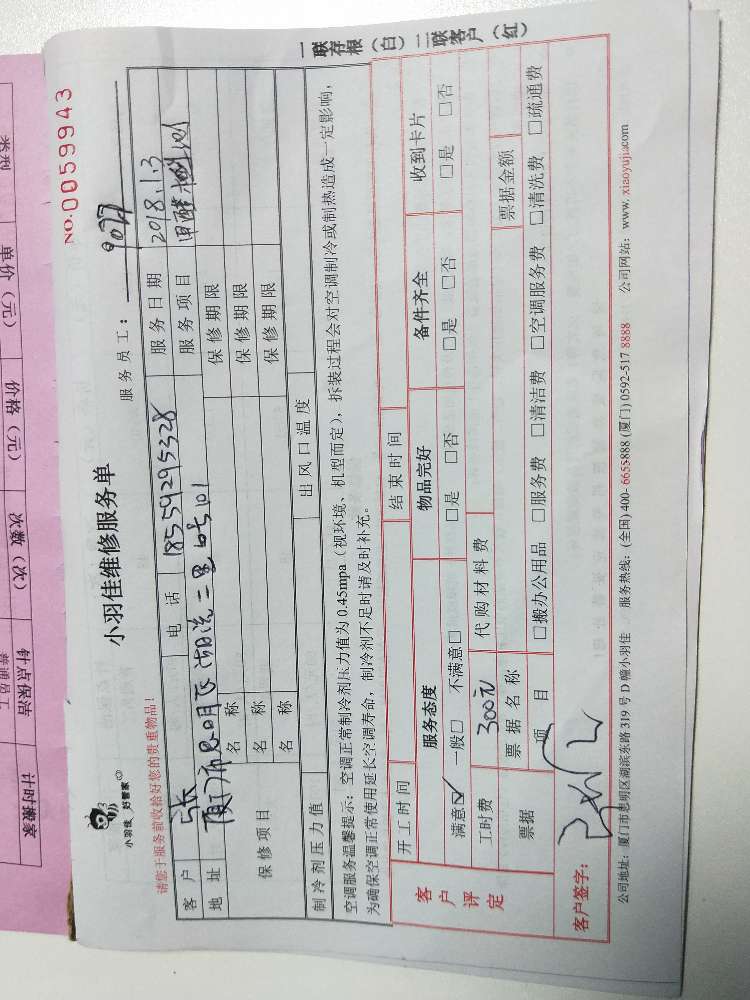 一联存根（白）二联客户（红）
NO.0059943
小羽佳 好管家
小羽佳维修服务单
服务员工： 9077
请您于服务前收拾好您的贵重物品！
客户 张 电话 18559295328 服务日期 2018.1.3
地址 厦门市思明区湖滨二里 101 服务项目 甲醛检测
保修项目 名称 保修期限
名称 保修期限
名称 保修期限
制冷剂压力值 出风口温度
空调服务温馨提示：空调正常制冷剂压力值为 0.45mpa（视环境、机型而定），拆装过程会对空调制冷或制热造成一定影响，
为确保空调正常使用延长空调寿命，制冷剂不足时请及时补充。
开工时间 结束时间
客户评定 服务态度 物品完好 备件齐全 收到卡片
满意☑ 一般□ 不满意□ □是 □否 □是 □否 □是 □否
工时费 300元 代购材料费
票据 票据名称 票据金额
项目 □搬办公用品 □服务费 □清洁费 □空调服务费 □清洗费 □疏通费
客户签字：
公司地址：厦门市思明区湖滨东路 319 号 D 幢小羽佳 服务热线：(全国) 400- 6655-888 (厦门) 0592-517 8888 公司网站：www. xiaoyujia.com
类型 单价（元） 价格（元） 次数（次） 钟点保洁 普通员工 计时搬家